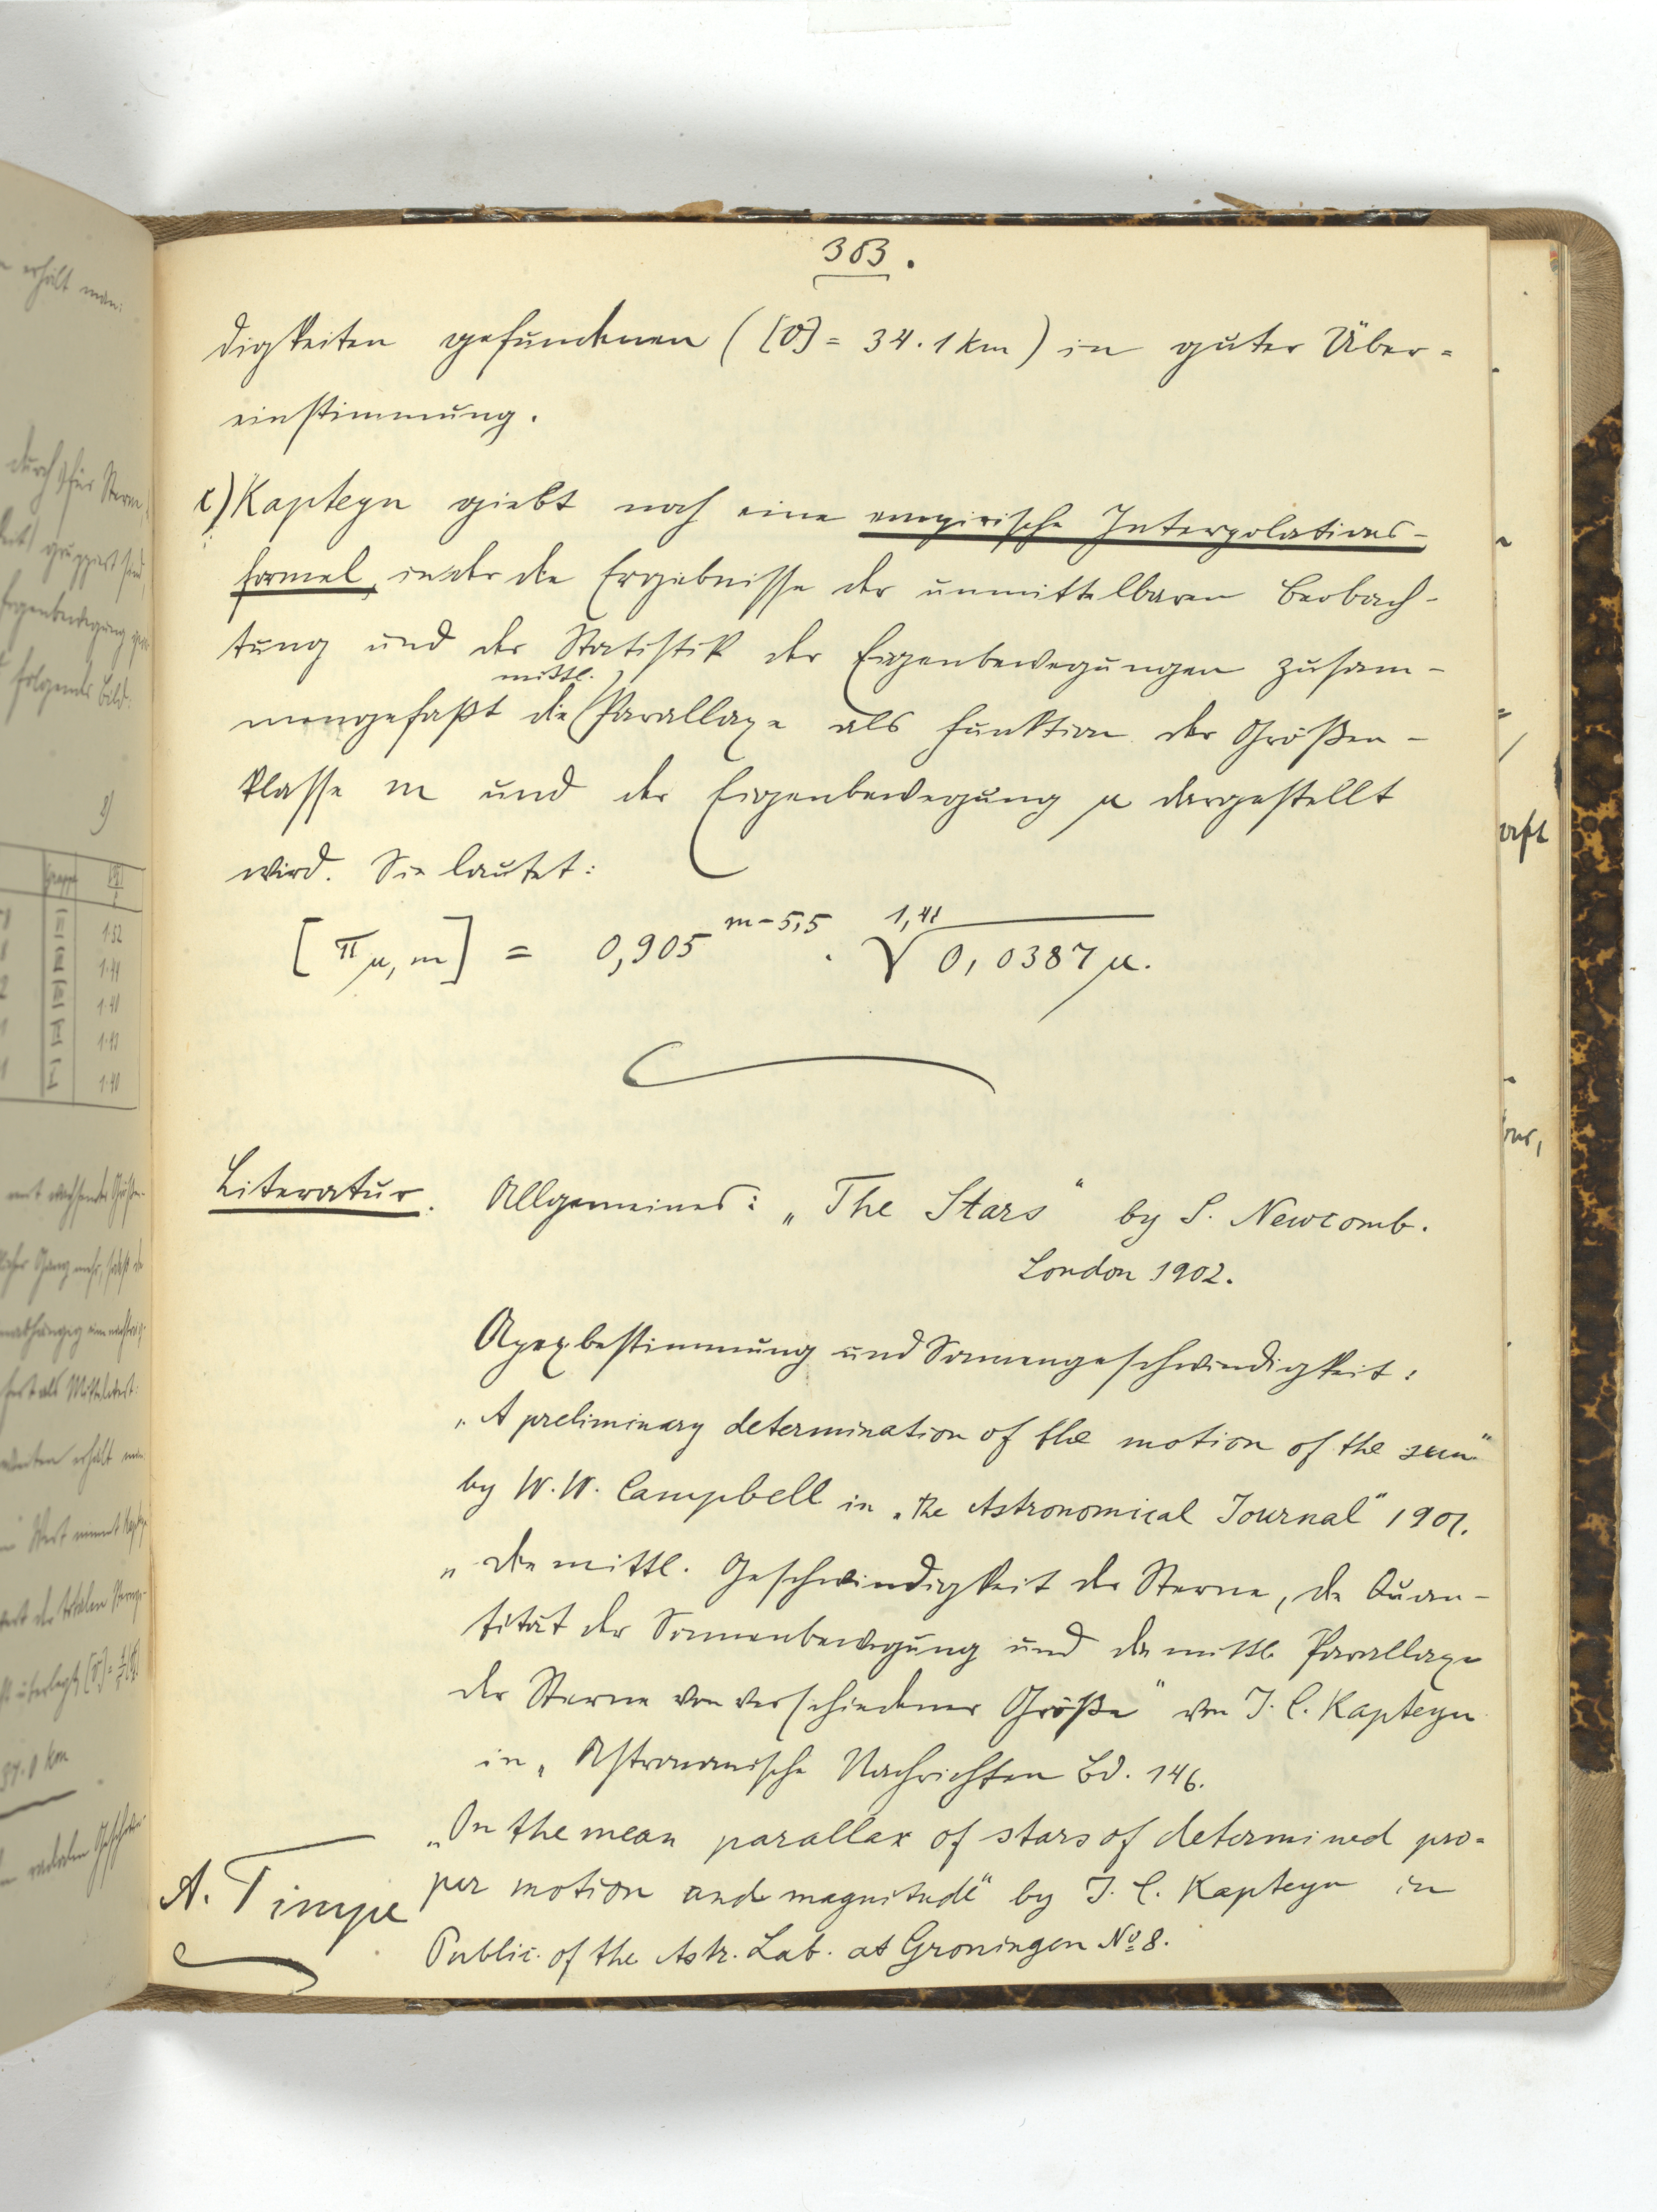 383.
digkeiten gefundenen ([v] = 34.1 km) in guter Über-
einstimmung.
c) Kapteyn giebt noch eine empirische Interpolations-
formel, in der die Ergebnisse der unmittelbaren Beobach-
tung und der Statistik der Eigenbewegungen zusam-
mengefaßt die mittl. Parallaxe als Funktion der Größen-
klasse m und der Eigenbewegung μ dargestellt
wird. Sie lautet:
[π μ, m] = 0,905^{m-5,5} · \sqrt[1,41]{0,0387 μ}.
Literatur. Allgemeines: „The Stars“ by S. Newcomb.
London 1902.
Apexbestimmung und Sonnengeschwindigkeit:
„A preliminary determination of the motion of the sun“
by W. W. Campbell in „the Astronomical Journal“ 1901.
„Die mittl. Geschwindigkeit der Sterne, die Quan-
tität der Sonnenbewegung und die mittl. Parallaxe
der Sterne von verschiedener Größe“ von J. C. Kapteyn
in „Astronomische Nachrichten Bd. 146.
„On the mean parallax of stars of determined pro-
per motion and magnitude“ by J. C. Kapteyn in
Public. of the Astr. Lab. at Groningen No 8.
A. Timpe
erhält man:
durch) für Sterne
folgendes Bild:
1.52
1.41
1.41
1.43
1.41